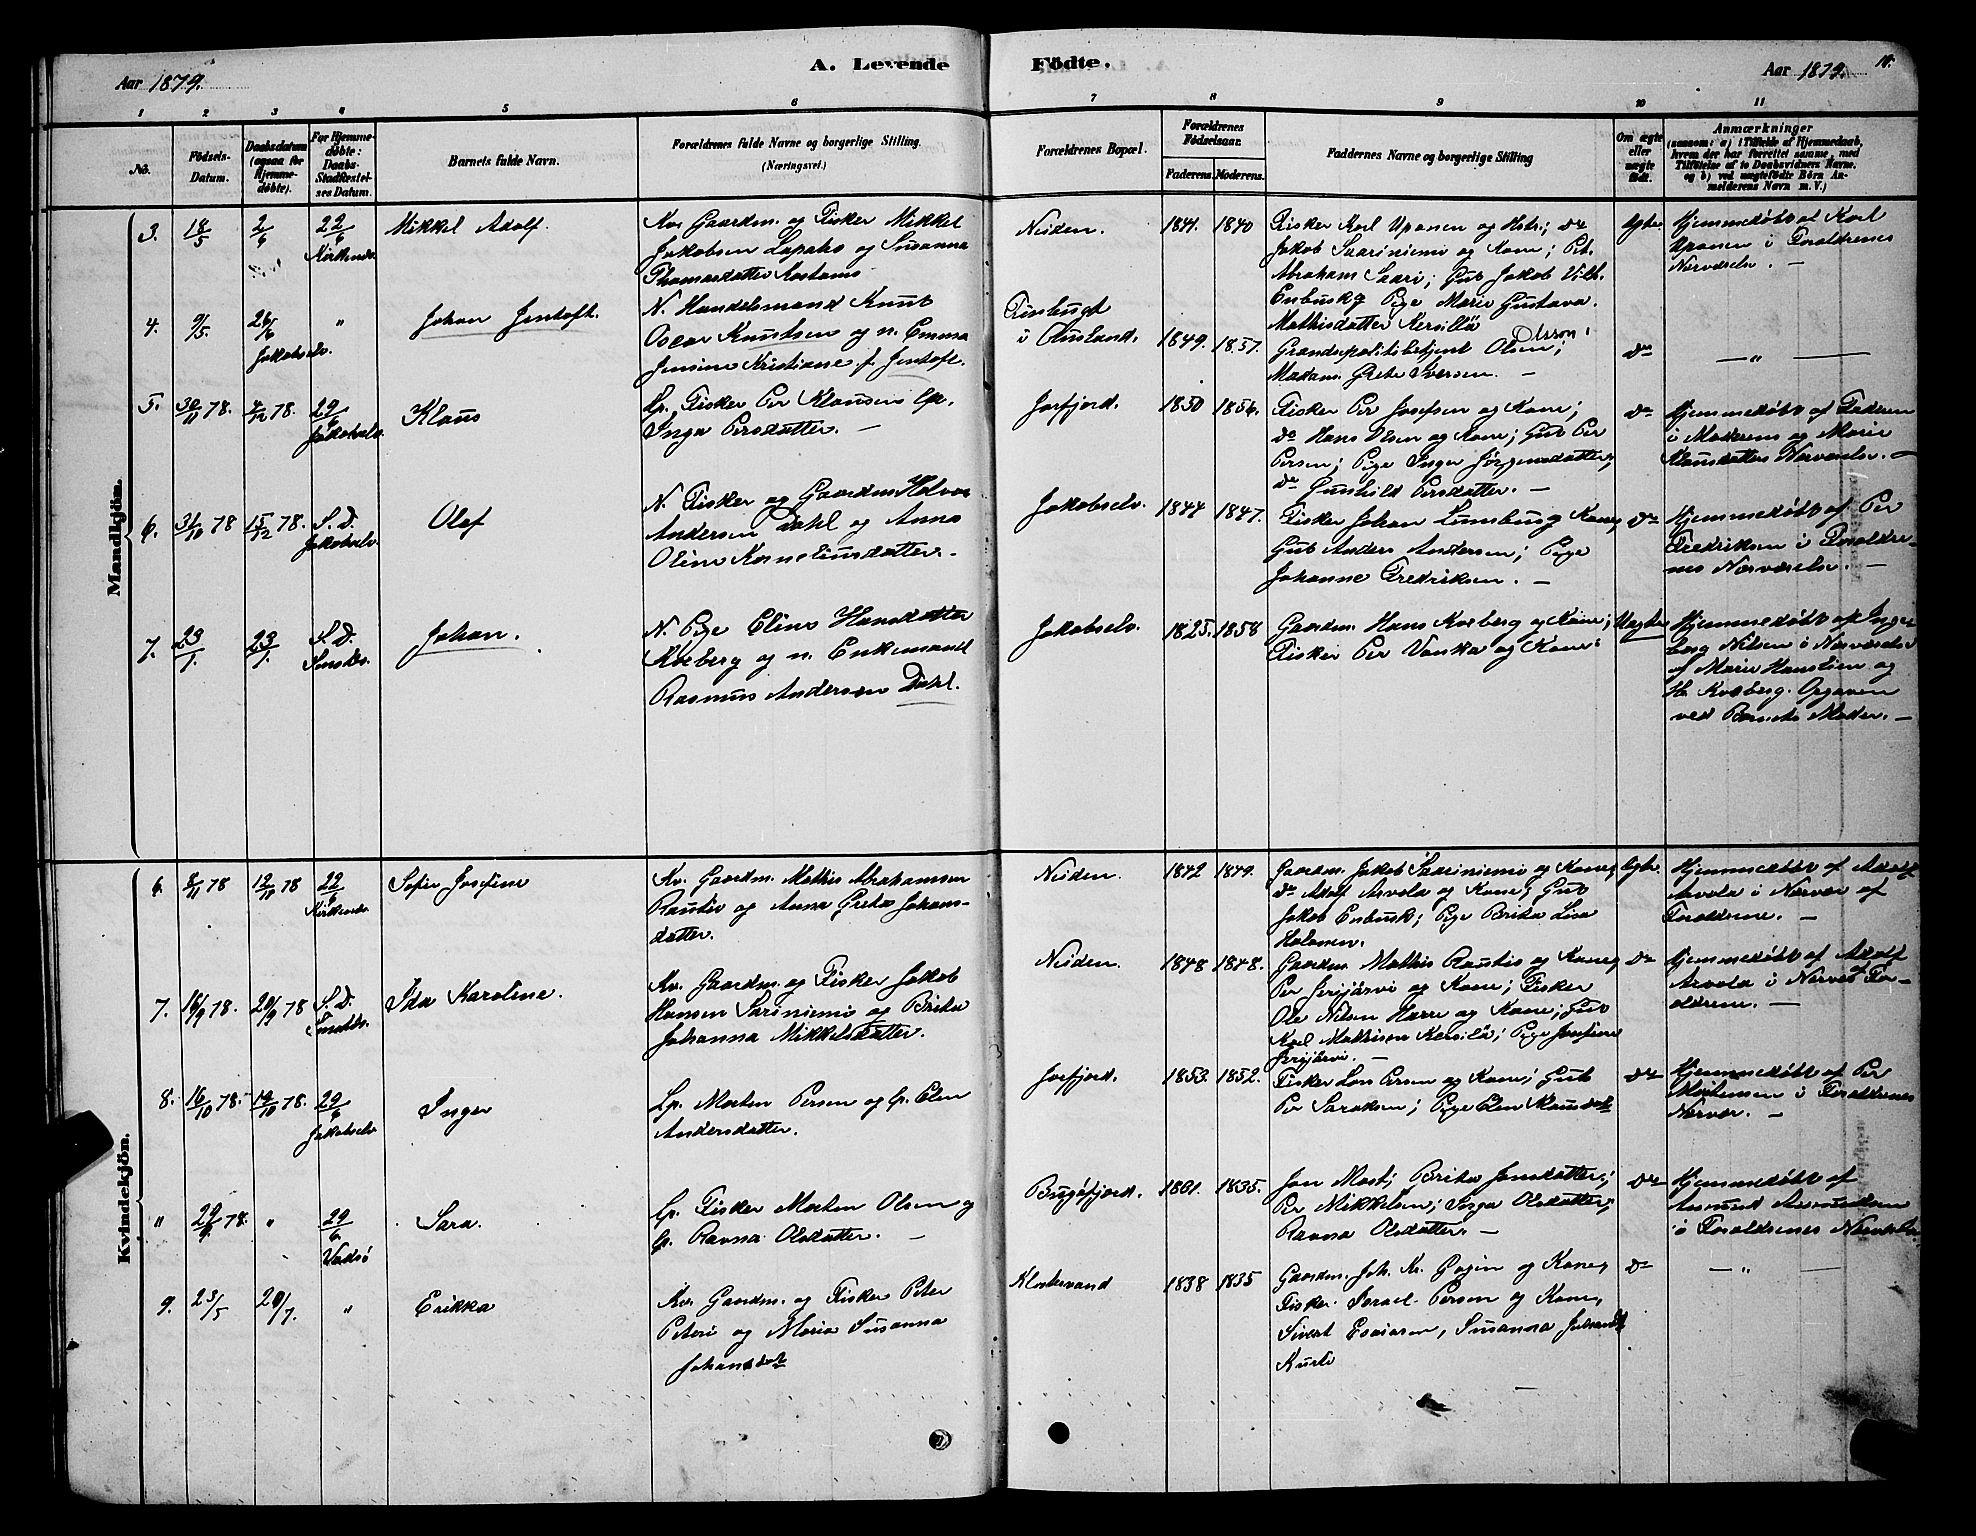 Aar 1879.
A. Levende
Födte.
Aar 1879.
10.
1 2 3 4 5 6 7 8 9 10 11
No.
Födsels-
Datum.
Daabsdatum
(ogsaa for
Hjemme-
döbte).
For Hjemme-
döbte:
Daabs-
Stadfæstel-
ses Datum.
Barnets fulde Navn.
Forældrenes fulde Navne og borgerlige Stilling.
(Næringsvei.)
Forældrenes Bopæl.
Forældrenes
Födselsaar.
Faderens.
Moderens.
Faddernes Navne og borgerlige Stilling
Om ægte
eller
uægte
födt.
Anmærkninger
(saasom: a) i Tilfælde af Hjemmedaab,
hvem der har forrettet samme, med
Tilföielse af to Daabsvidners Navne.
og b) ved uægtefödte Börn An-
melderens Navn m. V.)
Mandkjön.
3. 18/5 2/6 22/6
Kirkenæs.
Mikkel Adolf.
Kv. Gaardm. og Fisker Mikkel
Jakobsen Lapalo og Susanna
Thomasdatter
Neiden.
1841. 1840
Fisker Karl Uponen og Hstr; do
Jakob Saariniemi og Kone; Pet.
Abraham Saari; Gut Jakob Vilh.
Enbusk; Pige Marie Gustava
Mathisdatter Kersilä
Ægte
Hjemmedöbt af Karl
Uponen i Forældrenes
Nærværelse. —
4. 9/5 26/6 "
Jakobselv.
Johan Jentoft.
N. Handelsmand Knut
Oscar Knutsen og n. Emma
Jensine Kristiane f. Jentoft.
Finbugt
i Rusland.
1849. 1857.
Olsson
Grændsepolitibetjent Olsen;
Madam Grete Iversen. —
do
— " —
5. 30/11 78. 4/12 78. 29/6
Jakobselv
Klaus
Lp. Fisker Per Klausen lp.
Inga Persdatter. —
Jarfjord.
1850 1856.
Fisker Per Josefsen og Kone;
do Hans Olsen og Kone; Gut Per
Persen; Pige Inger Jörgensdatter;
do Gunhild Persdatter. —
do
Hjemmedöbt af Faderen
i Moderens og Marie
Klausdatters Nærværelse. —
6. 31/10 78 15/12 78. S. D.
Jakobselv
Olaf
N. Fisker og Gaardm. Halvor
Andersen Dahl og Anna
Oline Korneliusdatter. —
Jakobselv.
1844 1847.
Fisker Johan Lunsburg Kone;
Gut Anders Andersen; Pige
Johanne Fredriksen. —
do
Hjemmedöbt af Per
Fredriksen i Forældre-
nes Nærværelse. —
7. 23/1. 23/1. S. D.
Johan.
N. Pige Eline Hansdatter
Kvæberg og n. Enkemand
Rasmus Andersen Dahl.
Jakobselv.
1825. 1858
Gaardm. Hans Kvæberg og Kone;
Fisker Per Vanka og Kone.
Uægte
Hjemmedöbt af Inge-
borg Nilsen i Nærværelse
af Marie Hansen og
H. Kvæberg. Opgaven
ved Barnets Moder. —
Kvindekjön.
6. 8/11 78 12/11 78 22/6
Kirkenæs.
Sofie Josefine
Kv. Gaardm. Mathis Abrahamsen
Rautio og Anna Greta Johans-
datter.
Neiden.
1842 1849.
Gaardm. Jakob Saariniemi og Kone;
do Adolf Arvola og Kone; Gut
Jakob Enbusk; Pige Brita Lisa
Halonen.
Ægte.
Hjemmedöbt af Adolf
Arvola i Nærvær af
Forældrene. —
7. 18/9 78. 20/9 78 S. D.
Ida Karoline.
Kv. Gaardm. og Fisker Jakob
Hansen Sariniemi og Brita
Johanna Mikkelsdatter.
Neiden.
1848 1848.
Gaardm. Mathis Rautio og Kone;
Per Jerijärvi og Kone; Fisker
Ole Nilsen Harre og Kone; Gut
Karl Mathisen Kersilä; Pige Josefine
Jerijärvi. —
do
Hjemmedöbt af Adolf
Arvola i Nærvær af For-
ældrene. —
8. 16/10 78. 19/10 78. 29/6
Jakobselv
Inger
Lp. Morten Persen og lp. Elen
Andersdatter.
Jarfjord.
1853. 1852.
Fisker Lars Persen og Kone; Gut
Per Saraksen; Pige Elen Klausdatt
do
Hjemmedöbt af Per
Mortensen i Forældrenes
Nærvær. —
" 78. " 29/6
Vadsö
Sara.
Lp. Fisker Morten Olsen og
lp. Ravna Olsdatter. —
Bugöfjord.
1861. 1835.
Jon Mast; Brita Jonsdatter;
Per Mikkelsen; Inga Olsdatter;
Ravna Olsdatter. —
do
Hjemmedöbt af
Asmund Asmundsen
i Forældrenes Nærværelse
9. 23/5 20/7. "
Erikka
Kv. Gaardm. og Fisker Peter
Peteri og Maria Susanna
Johansdatt
Klostervand
1838 1835
Gaardm. Joh. Kr. Gogin og Kone,
Fisker Israel Persen og Kone,
Sivert Esaiasen, Susanna
do
— " —